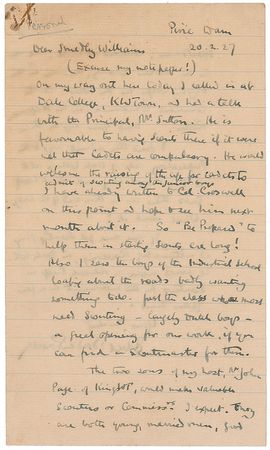 Personal
Pirie Dam
Dear Smedly Williams 20.2.27
(Excuse my notepaper!)
On my way out here today I called in at
Dale College, KW Town, and had a talk
with the Principal, Mr Sutton. He is
favourable to having Scouts there if it were
not that Cadets are compulsory. He would
welcome the raising of the age for cadets to
admit of scouting among the junior boys
I have already written to Col.
on this point and hope to see him next
month about it. So "Be Prepared" to
help them in starting Scouts ere long!
Also I saw the boys of the Industrial School
loafing about the roads badly wanting
something to do. Just the class who most
need Scouting – largely Dutch boys –
a great opening for our work, if you
can find a Scoutmaster for them.
The two sons of my host, Mr John
Page of, would make valuable
Scouters or Commissrs I expect. They
are both young, married men, good